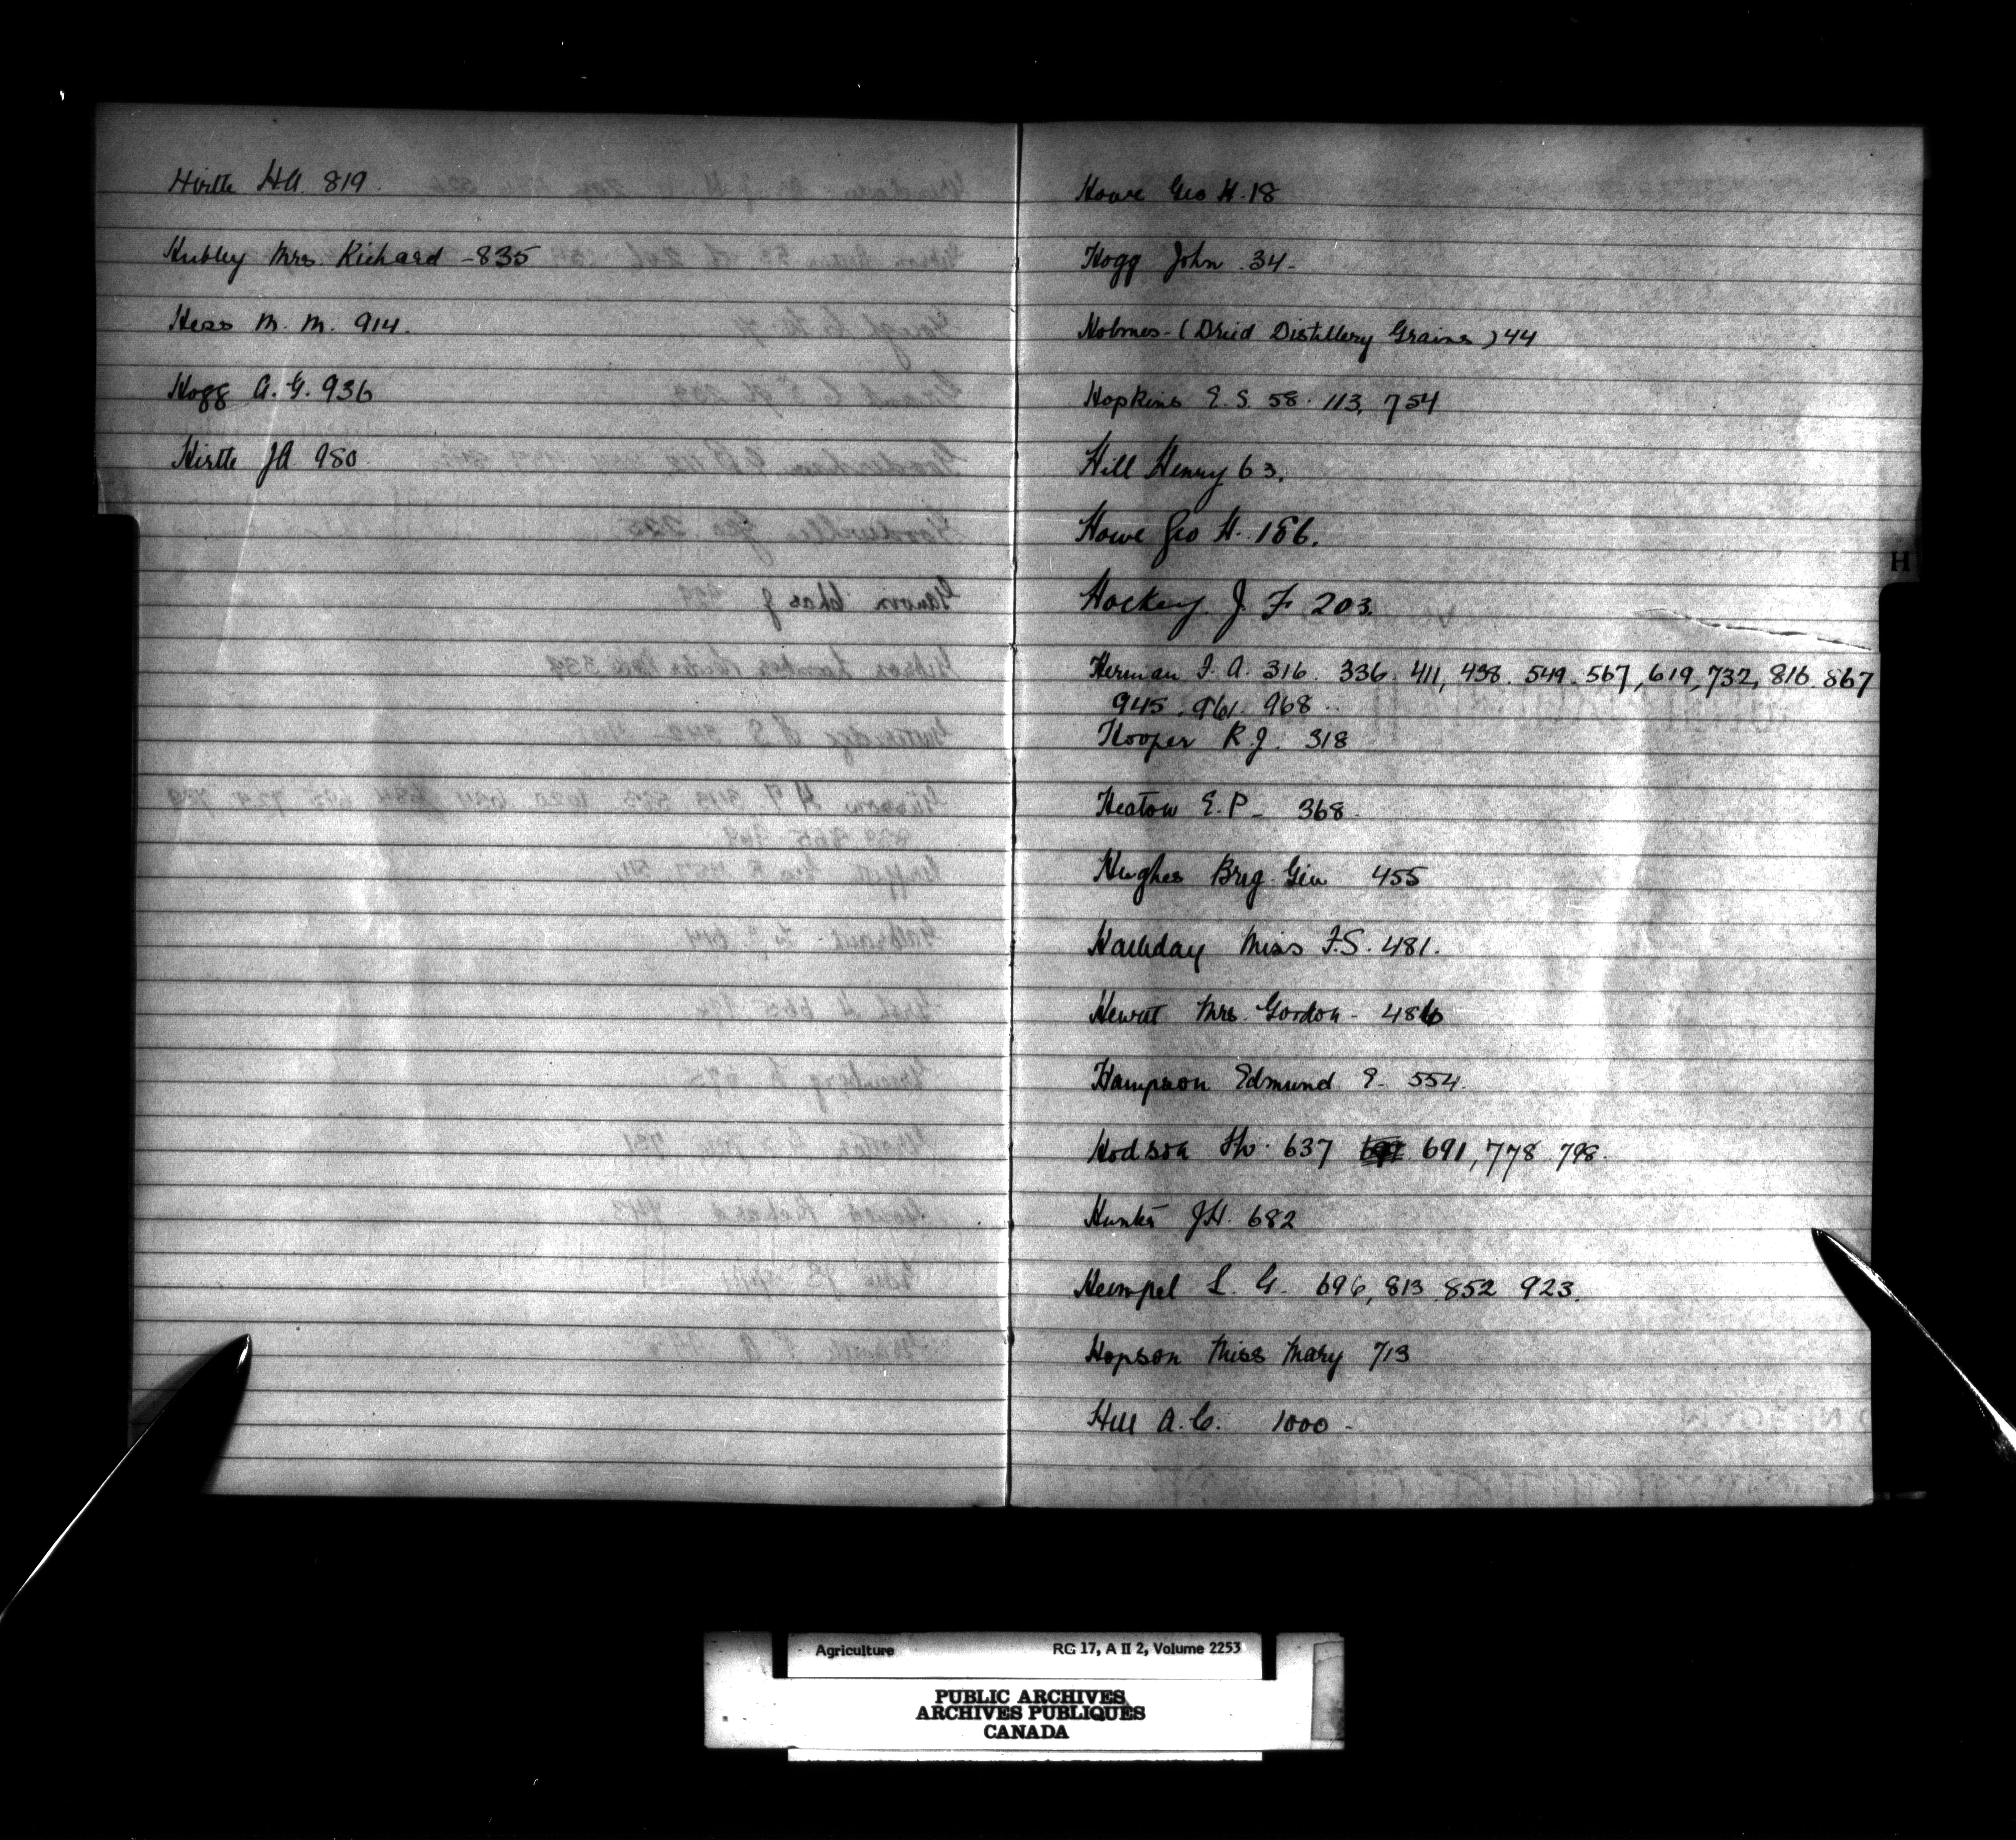 Hirtle H.A. 819.
Hubley Mrs. Richard - 835
Hess M. M. 914.
Hogg A. G. 936
Hirtle JA. 980.
Howe Geo H. 18
Hogg John . 34 -
Holmes - (Dried Distillery Grains) 44
Hopkins E. S. 58. 113, 754
Hill Henry 63.
Howe Geo H. 186.
Hockey J. F. 203.
Herman F. A. 316. 336. 411, 438. 549. 567, 619, 732, 816. 867
945. 961. 968 ..
Hooper R. J. 318
Heaton E. P - 368.
Hughes Brig. Gen 455
Halliday Miss F.S. 481.
Hewitt Mrs. Gordon - 486
Hampson Edmund E - 554.
Hodson 637 691, 778 798.
Hunter J.H. 682
Heimpel L. G. 696, 813 852 923.
Hopson Miss Mary 713
Hill A. C. 1000 -
H
Agriculture RG 17, A II 2, Volume 2253
PUBLIC ARCHIVES
ARCHIVES PUBLIQUES
CANADA